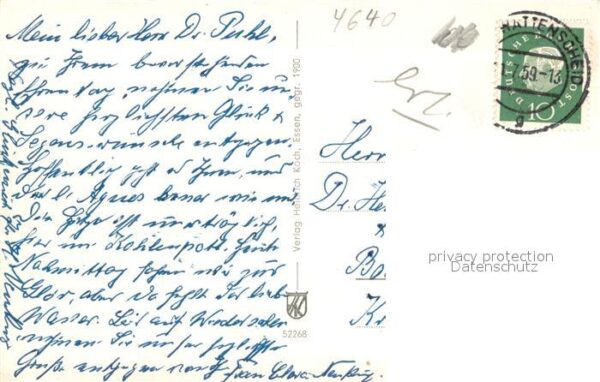 4640
Mein lieber Herr Dr.
zu Ihrem bevorstehenden
Ehrentag nehmen Sie un
sere herzlichsten Glück &
Segenswünsche entgegen.
Hoffentlich geht es Ihnen, und
der lb. Agnes
Die Hitze ist unerträglich,
hier im Kohlenpott. Heute
Nachmittag fahren wir zur
aber da fehlt das liebe
Wasser. Bis auf Wiedersehen
nehmen Sie unsere herzlichste
Grüße entgegen von Frau Clara
Verlag Heinrich Koch, Essen, gegr. 1900
52268
WATTENSCHEID
59-13
a
DEUTSCHE BUNDESPOST
10
Herr
Dr. He
Ba
Kr
privacy protection
Datenschutz